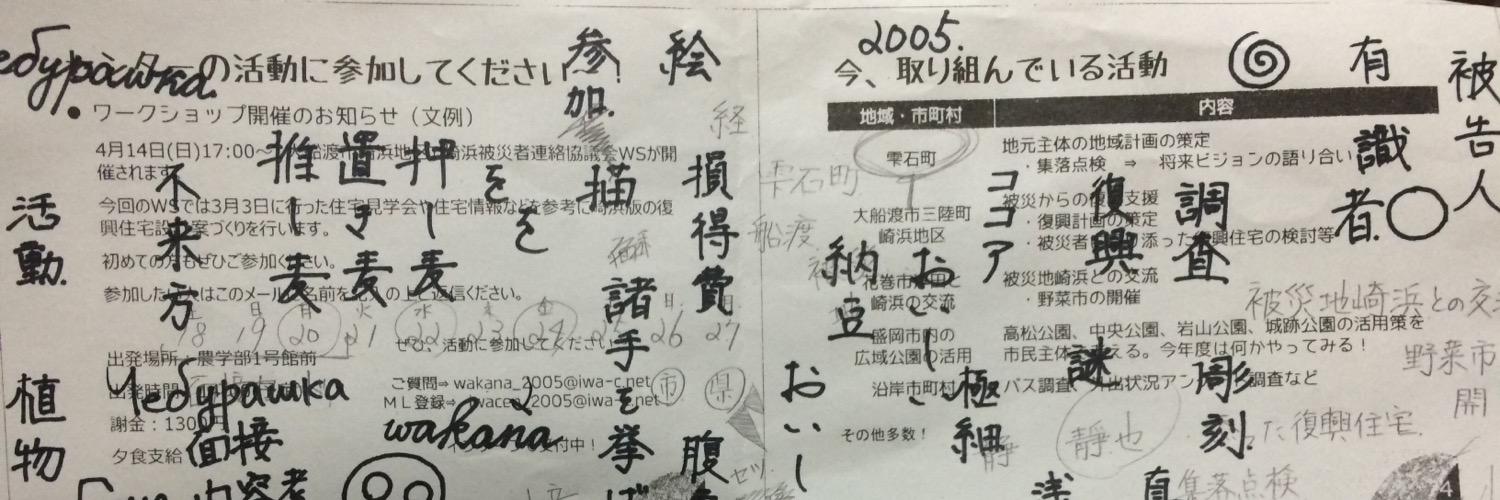 の活動に参加してください！
● ワークショップ開催のお知らせ（文例）
4月14日(日)17:00～
崎浜被災者連絡協議会WSが開
催されます
今回のWSでは3月3日に行った住宅見学会や住宅情報などを参考に崎浜版の復
興住宅設
案づくりを行います。
初めての方もぜひご参加ください。
参加した
はこのメール
名前を記入の上ご返信ください。
ぜひ、活動に参加してください
出発場所
農学部1号館前
出発時間
謝金：1300円
夕食支給
ご質問⇒ wakana_2005@iwa-c.net
ＭＬ登録⇒ iwacen_2005@iwa-c.net
付中！
今、取り組んでいる活動
地域・市町村
内容
雫石町
地元主体の地域計画の策定
・集落点検 ⇒ 将来ビジョンの語り合い
大船渡市三陸町
崎浜地区
被災からの復興支援
・復興計画の策定
・被災者
添った復興住宅の検討等
崎浜の交流
被災地崎浜との交流
・野菜市の開催
盛岡市内の
広域公園の活用
高松公園、中央公園、岩山公園、城跡公園の活用策を
市民主体で考える。今年度は何かやってみる！
沿岸市町村
バス調査、外出状況アン
調査など
その他多数！
4
2005.
Чебурашка
wakana
被告人
有識者
調査
復興
ココア
おいしい
納豆
極細
謎
彫刻
絵
損得費
腹
参加
描
諸手を挙げ
をを
押し麦
置き麦
推し麦
不来方
活動
植物
面接
内容者
おいし
浅
経
雫石町
船渡
18 19 20 21 22 23 24 25 26 27
日 月 火 水 木 金
日 月
市
県
静
静也
被災地崎浜との交
野菜市
開
た復興住宅
集落点検
セツ